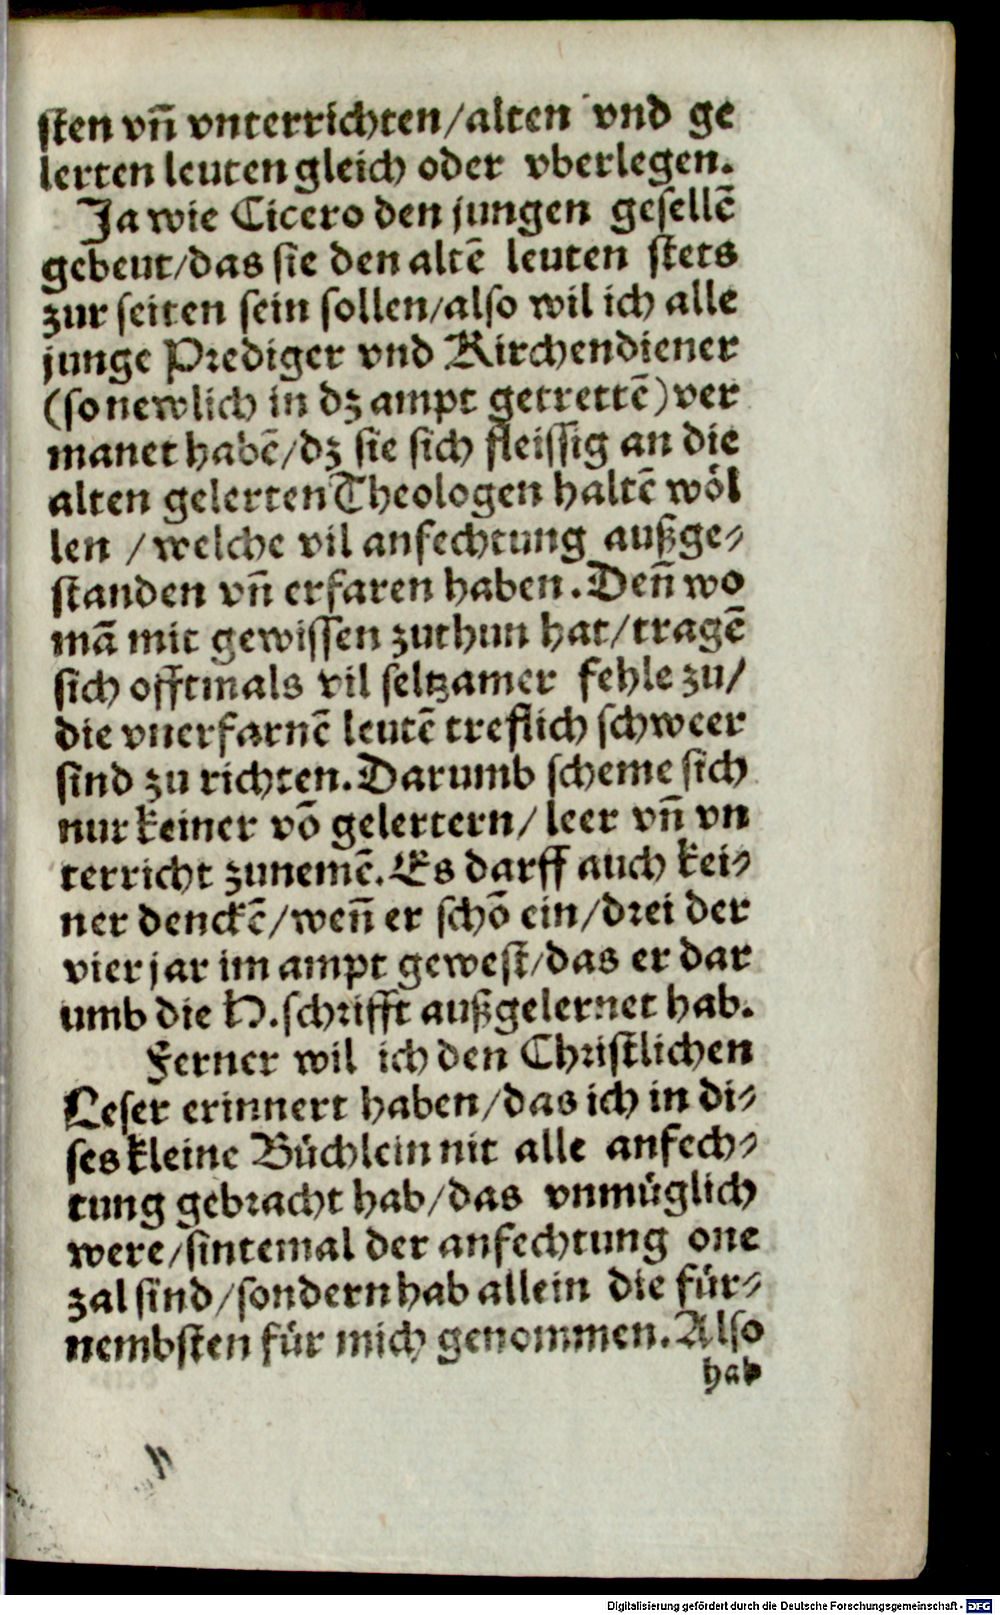 sten vñ vnterrichten/alten vnd ge
lerten leuten gleich oder vberlegen.
Ja wie Cicero den jungen gesellē
gebeut/das sie den altē leuten stets
zur seiten sein sollen/also wil ich alle
junge Prediger vnd Kirchendiener
(so newlich in dz ampt getrettē) ver
manet habē/dz sie sich fleissig an die
alten gelerten Theologen haltē wöl
len /welche vil anfechtung außge-
standen vñ erfaren haben. Deñ wo
mā mit gewissen zuthun hat/tragē
sich offtmals vil seltzamer fehle zu/
die vnerfarnē leutē treflich schweer
sind zu richten. Darumb scheme sich
nur keiner vō gelertern/leer vñ vn
terricht zunemē. Es darff auch kei-
ner denckē/weñ er schō ein/drei der
vier jar im ampt gewest/das er dar
umb die H. schrifft außgelernet hab.
Ferner wil ich den Christlichen
Leser erinnert haben/das ich in di-
ses kleine Büchlein nit alle anfech-
tung gebracht hab/das vnmüglich
were/sintemal der anfechtung one
zal sind/sondern hab allein die für-
nembsten für mich genommen. Also
hab
Digitalisierung gefördert durch die Deutsche Forschungsgemeinschaft - DFG